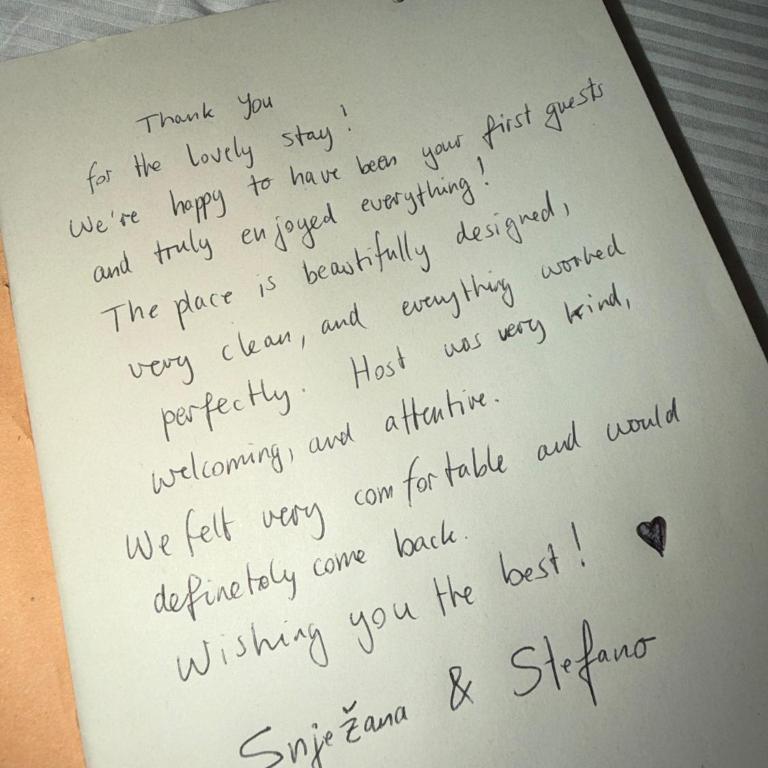 Thank You
for the lovely stay!
We're happy to have been your first guests
and truly enjoyed everything!
The place is beautifully designed,
very clean, and everything worked
perfectly. Host was very kind,
welcoming, and attentive.
We felt very comfortable and would
definetely come back.
Wishing you the best! ♥
Snježana & Stefano